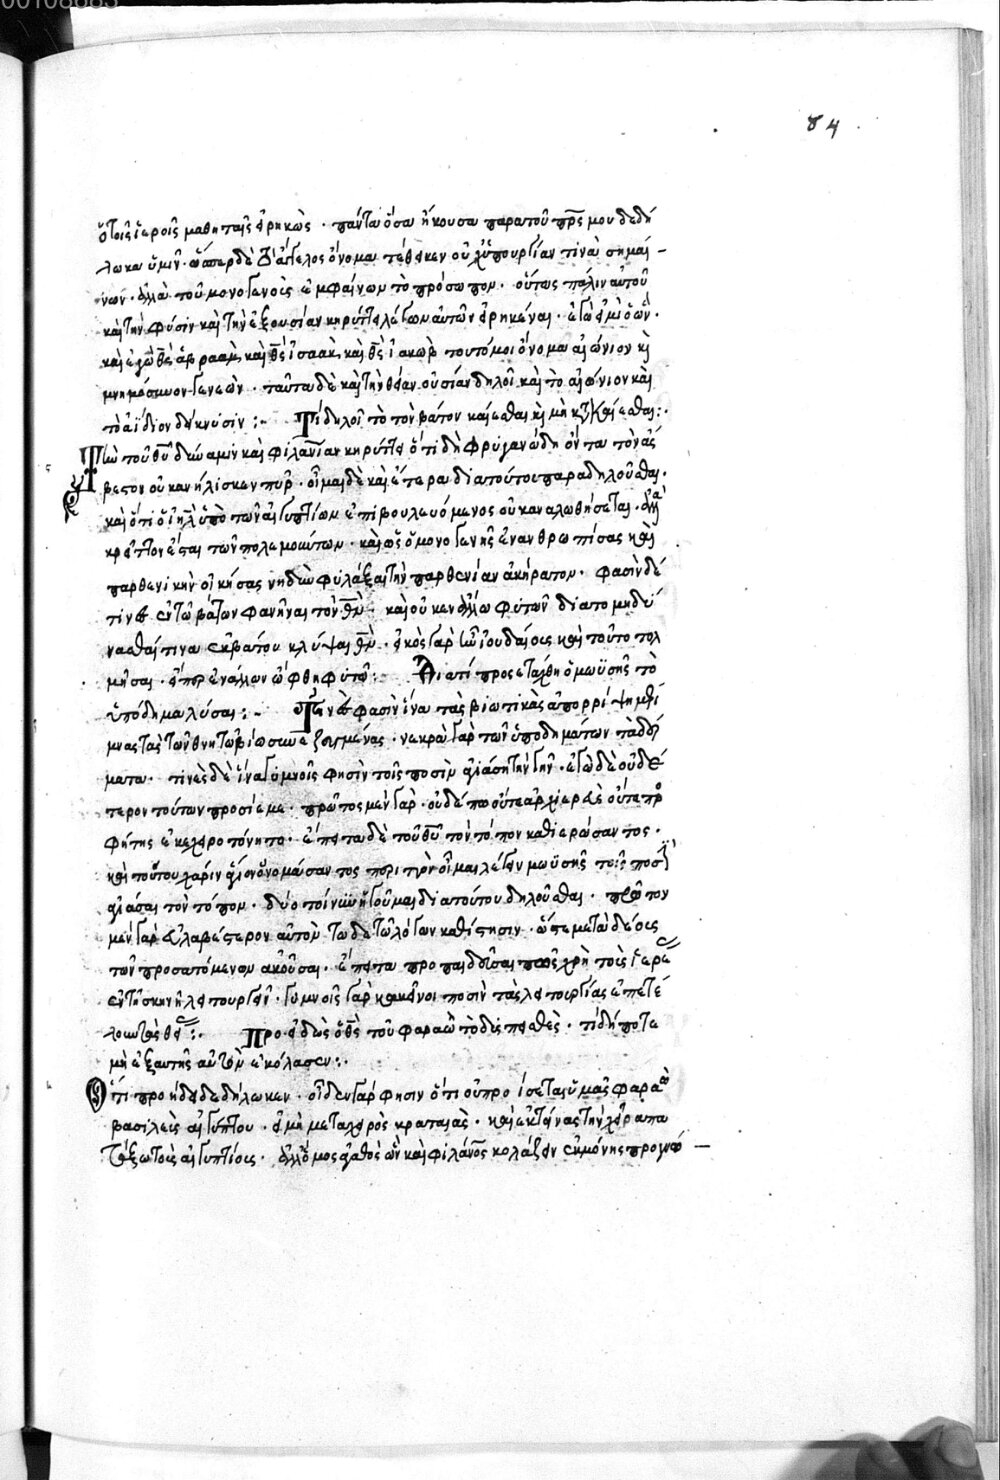 00108683
84
τοῖς ἱεροῖς μαθηταῖς εἰρηκὼς · πάντα ὅσα ἤκουσα παρα τοῦ πρς μου δεδή
λωκα ὑμῖν · ὥσπερ δὲ ἄγγελος ὄνομα τέθεικεν οὐχ ὑπουργίαν τινὰ σημαί
νων · ἀλλὰ τοῦ μονογενοῦς ἐμφαίνων τὸ πρόσωπον · οὕτως πάλιν αὐτοῦ
καὶ τὴν φύσιν καὶ τὴν ἐξουσίαν κηρύττει λέγων αὐτὸν εἰρηκέναι · ἐγώ εἰμι ὁ ὤν ·
καὶ ἐγὼ θς ἁβραὰμ καὶ θς ἰσαὰκ καὶ θς ἰακώβ τουτό μοι ὄνομα αἰώνιον κὶ
μνημόσυνον γενεῶν · ταῦτα δὲ καὶ τὴν θείαν οὐσίαν δηλοῖ καὶ τὸ αἰώνιον καὶ
τὸ ἀΐδιον δείκνυσιν :- Τί δηλοῖ τὸ τὸν βάτον καίεσθαι κὶ μὴ κατακαίεσθαι :·
Τὴν τοῦ θυ δύναμιν καὶ φιλανίαν κηρύττει ὅτι δὴ φρυγανώδη ὄντα τὸν ἄσ
βεστον οὐκ ἀνήλισκεν πῦρ · οἶμαι δὲ καὶ ἕτερα διὰ τούτου παραδηλοῦσθαι ·
καὶ ὅτι ὁ ιηλ ὑπὸ τῶν αἰγυπτίων ἐπιβουλευόμενος οὐκ αναλωθήσεται · ἀλλὰ
κρείττων ἔσται τῶν πολεμούντων · καὶ ὡς ὁ μονογενὴς ἐνανθρωπίσας καὶ
παρθενικὴν οἰκήσας νηδὺν φυλάξει τὴν παρθενίαν ἀκήρατον · φασὶν δέ
τινες ἐν τῶ βάτων φανῆναι τὸν θν · καὶ οὐκ ἐν ἄλλω φυτῶ διὰ το μη δύ
νασθαί τινα ἐκ βάτου κλύψαι θν · εἰκὸς γὰρ ἦν ἰουδαίοις καὶ τοῦτο τολ
μῆσαι · εἴπερ ἐν ἄλλω ὤφθη φυτῶ :· Διατί προσετάχθη ὁ μωϋσῆς τὸ
ὑπόδημα λύσαι :- Τινές φασὶν ἵνα τὰς βιωτικὰς ἀπορρίψη μερί
μνας τὰς τῶν θνητῶ βίω συνεζευγμένας · νεκρὰ γὰρ τῶν ὑποδημάτων τὰ δέρ
ματα · τινὲς δὲ ἵνα γυμνοῖς φησὶν τοῖς ποσὶν ἁγιάση τὴν γῆν · ἐγὼ δὲ οὐδέ
τερον τούτων προσίεμαι · πρῶτος μὲν γὰρ · οὐδέπω οὔτε ἀρχιερεὺς οὔτε προ
φήτης ἐκεχειροτόνητο · ἔπειτα δὲ τοῦ θυ τὸν τόπον καθιερώσαντος ·
καὶ τούτου χάριν ἅγιον ὀνομάσαντος περιττὸν οἶμαι λέγειν μωϋσῆς τοῖς ποσὶν
ἁγιάσαι τὸν τόπον · δύο τοίνυν ἡγοῦμαι διὰ τούτου δηλοῦσθαι · πρῶτον
μὲν γὰρ εὐλαβέστερον αὐτὸν τῶδε τῶ λόγων καθίστησιν · ὥστε μετὰ δέους
τῶν προστατομένων ἀκοῦσαι · ἔπειτα προπαιδεῦσαι πῶς χρὴ τοὺς ἱερεῖς
ἐν τῆ σκηνῆ λειτουργεῖν · γυμνοῖς γὰρ κἀκεῖνοι ποσὶν τὰς λειτουργίας ἐπετέ
λουν τῶ θεῶ :· Προειδὼς ὁ θς τοῦ φαραὼ τὸ δυσπειθὲς · τί δήποτε
μὴ ἐξ αυτῆς αὐτὸν ἐκόλασεν :·
Ὅτι προήδει δεδήλωκεν · οἶδεν γάρ φησιν ὅτι οὐ προίσεται ὑμᾶς φαραὼ
βασιλεὺς αἰγύπτου · εἰ μὴ μετὰ χειρὸς κραταιᾶς · καὶ ἐκτείνας τὴν χεῖρα πα
τάξω τοὺς αἰγυπτίους · ἀλλ' ὅμως ἀγαθὸς ὢν καὶ φιλάνος κολάζειν ἐκ μόνης προγνώ